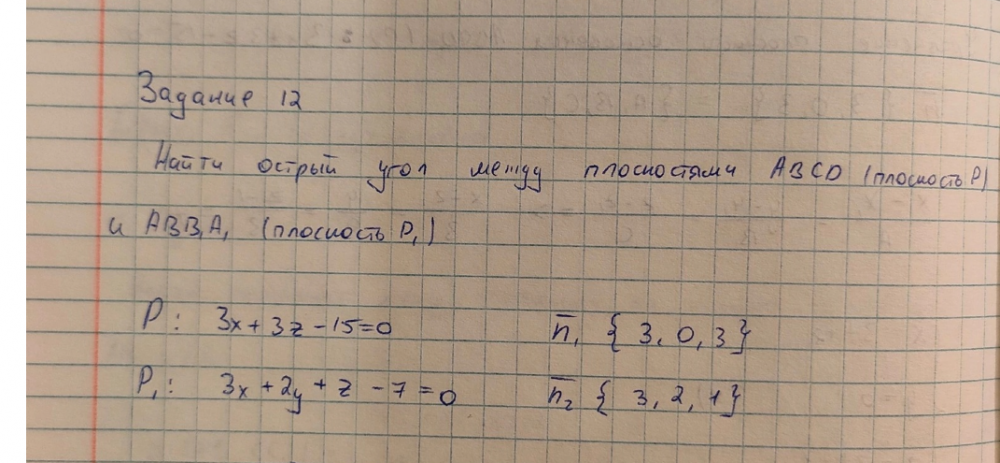 Задание 12
Найти острый угол между плоскостями ABCD (плоскость P)
и ABB₁A₁ (плоскость P₁)
P: 3x + 3z - 15 = 0 n̅₁ { 3, 0, 3 }
P₁: 3x + 2y + z - 7 = 0 n̅₂ { 3, 2, 1 }